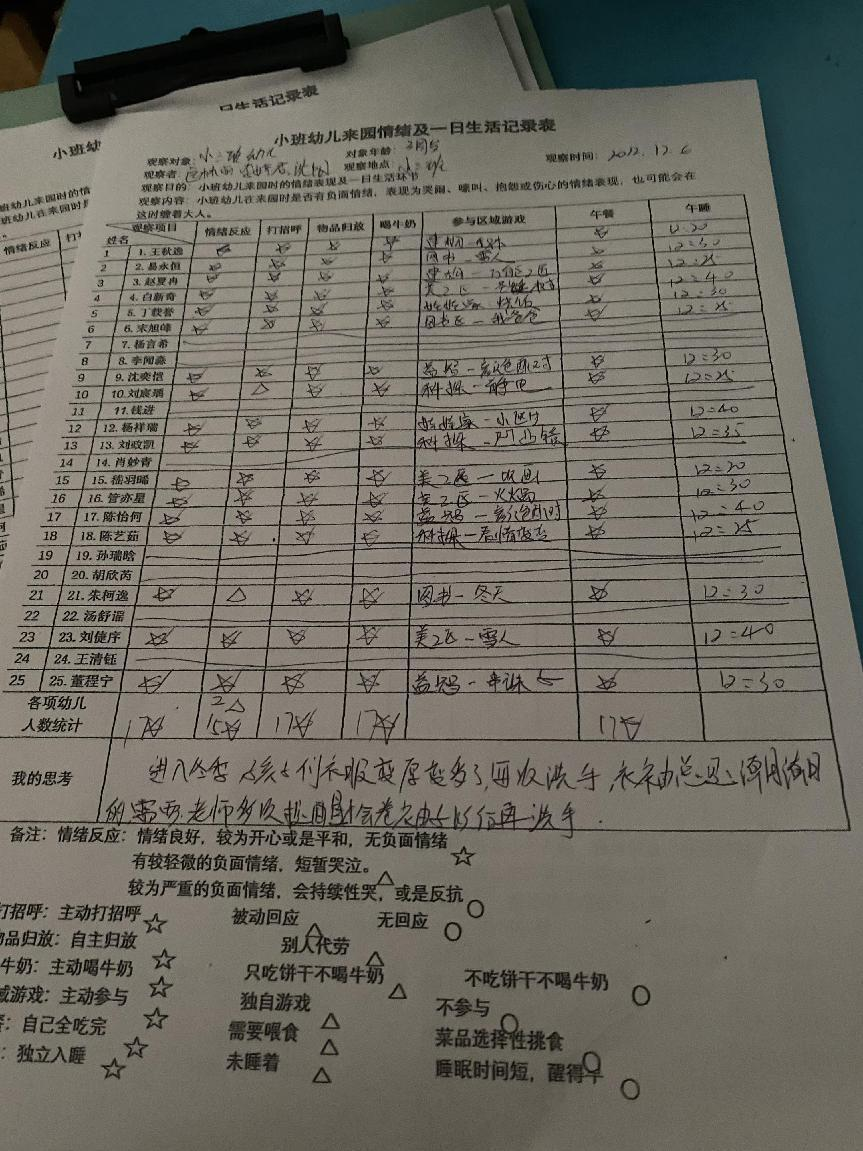 一日生活记录表
小班幼
小班幼儿来园情绪及一日生活记录表
观察对象：小三班幼儿 对象年龄：3周岁 观察时间：2022.12.6
观察者： 观察地点：小三班
观察目的：小班幼儿来园时的情绪表现及一日生活环节
观察内容：小班幼儿在来园时是否有负面情绪，表现为哭闹、嚎叫、抱怨或伤心的情绪表现，也可能会在
这时缠着大人。
观察项目 姓名 情绪反应 打招呼 物品归放 喝牛奶 参与区域游戏 午餐 午睡
1 1. 王秋逸 ☆ ☆ ☆ ☆ ☆ 12:20
2 2. 易永恒 ☆ ☆ ☆ ☆ 图书—雪人 ☆ 12:30
3 3. 赵夏冉 ☆ ☆ ☆ ☆ ☆ 12:25
4 4. 白新奇 ☆ ☆ ☆ ☆ 美工区 ☆ 12:40
5 5. 丁载誉 ☆ ☆ ☆ ☆ 娃娃家—烧饭 ☆ 12:30
6 6. 宋旭峰 ☆ ☆ ☆ ☆ 图书区—我爸爸 ☆ 12:25
7 7. 杨言希
8 8. 李闻淼
9 9. 沈奕恺 ☆ ☆ ☆ ☆ 益智 ☆ 12:30
10 10. 刘宸瑀 ☆ △ ☆ ☆ 科探—静电 ☆ 12:25
11 11. 钱进
12 12. 杨祥瑞 ☆ ☆ ☆ ☆ 娃娃家 ☆ 12:40
13 13. 刘政凯 ☆ ☆ ☆ ☆ 科探 ☆ 12:35
14 14. 肖妙青
15 15. 嵇羽晞 ☆ ☆ ☆ ☆ 美工区—吹画 ☆ 12:20
16 16. 管亦星 ☆ ☆ ☆ ☆ 美工区 ☆ 12:30
17 17. 陈怡何 ☆ ☆ ☆ ☆ 益智 ☆ 12:40
18 18. 陈艺茹 ☆ ☆ ☆ ☆ 科探 ☆ 12:25
19 19. 孙瑞晗
20 20. 胡欣芮
21 21. 朱柯逸 ☆ △ ☆ ☆ 图书—冬天 ☆ 12:30
22 22. 汤舒谣
23 23. 刘倢序 ☆ ☆ ☆ ☆ 美工区—雪人 ☆ 12:40
24 24. 王清钰
25 25. 董程宁 ☆ ☆ ☆ ☆ 益智 ☆ 12:30
各项幼儿人数统计 17☆ 2△ 15☆ 17☆ 17☆ 17☆
我的思考 进入冬季，孩子们衣服变厚变多了，每次洗手，衣袖总是
老师多次提醒才会卷起袖子以后再洗手。
备注：情绪反应：情绪良好，较为开心或是平和，无负面情绪 ☆
有较轻微的负面情绪，短暂哭泣。 △
较为严重的负面情绪，会持续性哭，或是反抗 ○
打招呼：主动打招呼 ☆ 被动回应 △ 无回应 ○
物品归放：自主归放 ☆ 别人代劳 △
牛奶：主动喝牛奶 ☆ 只吃饼干不喝牛奶 △ 不吃饼干不喝牛奶 ○
域游戏：主动参与 ☆ 独自游戏 △ 不参与 ○
自己全吃完 ☆ 需要喂食 △ 菜品选择性挑食 ○
独立入睡 ☆ 未睡着 △ 睡眠时间短，醒得早 ○